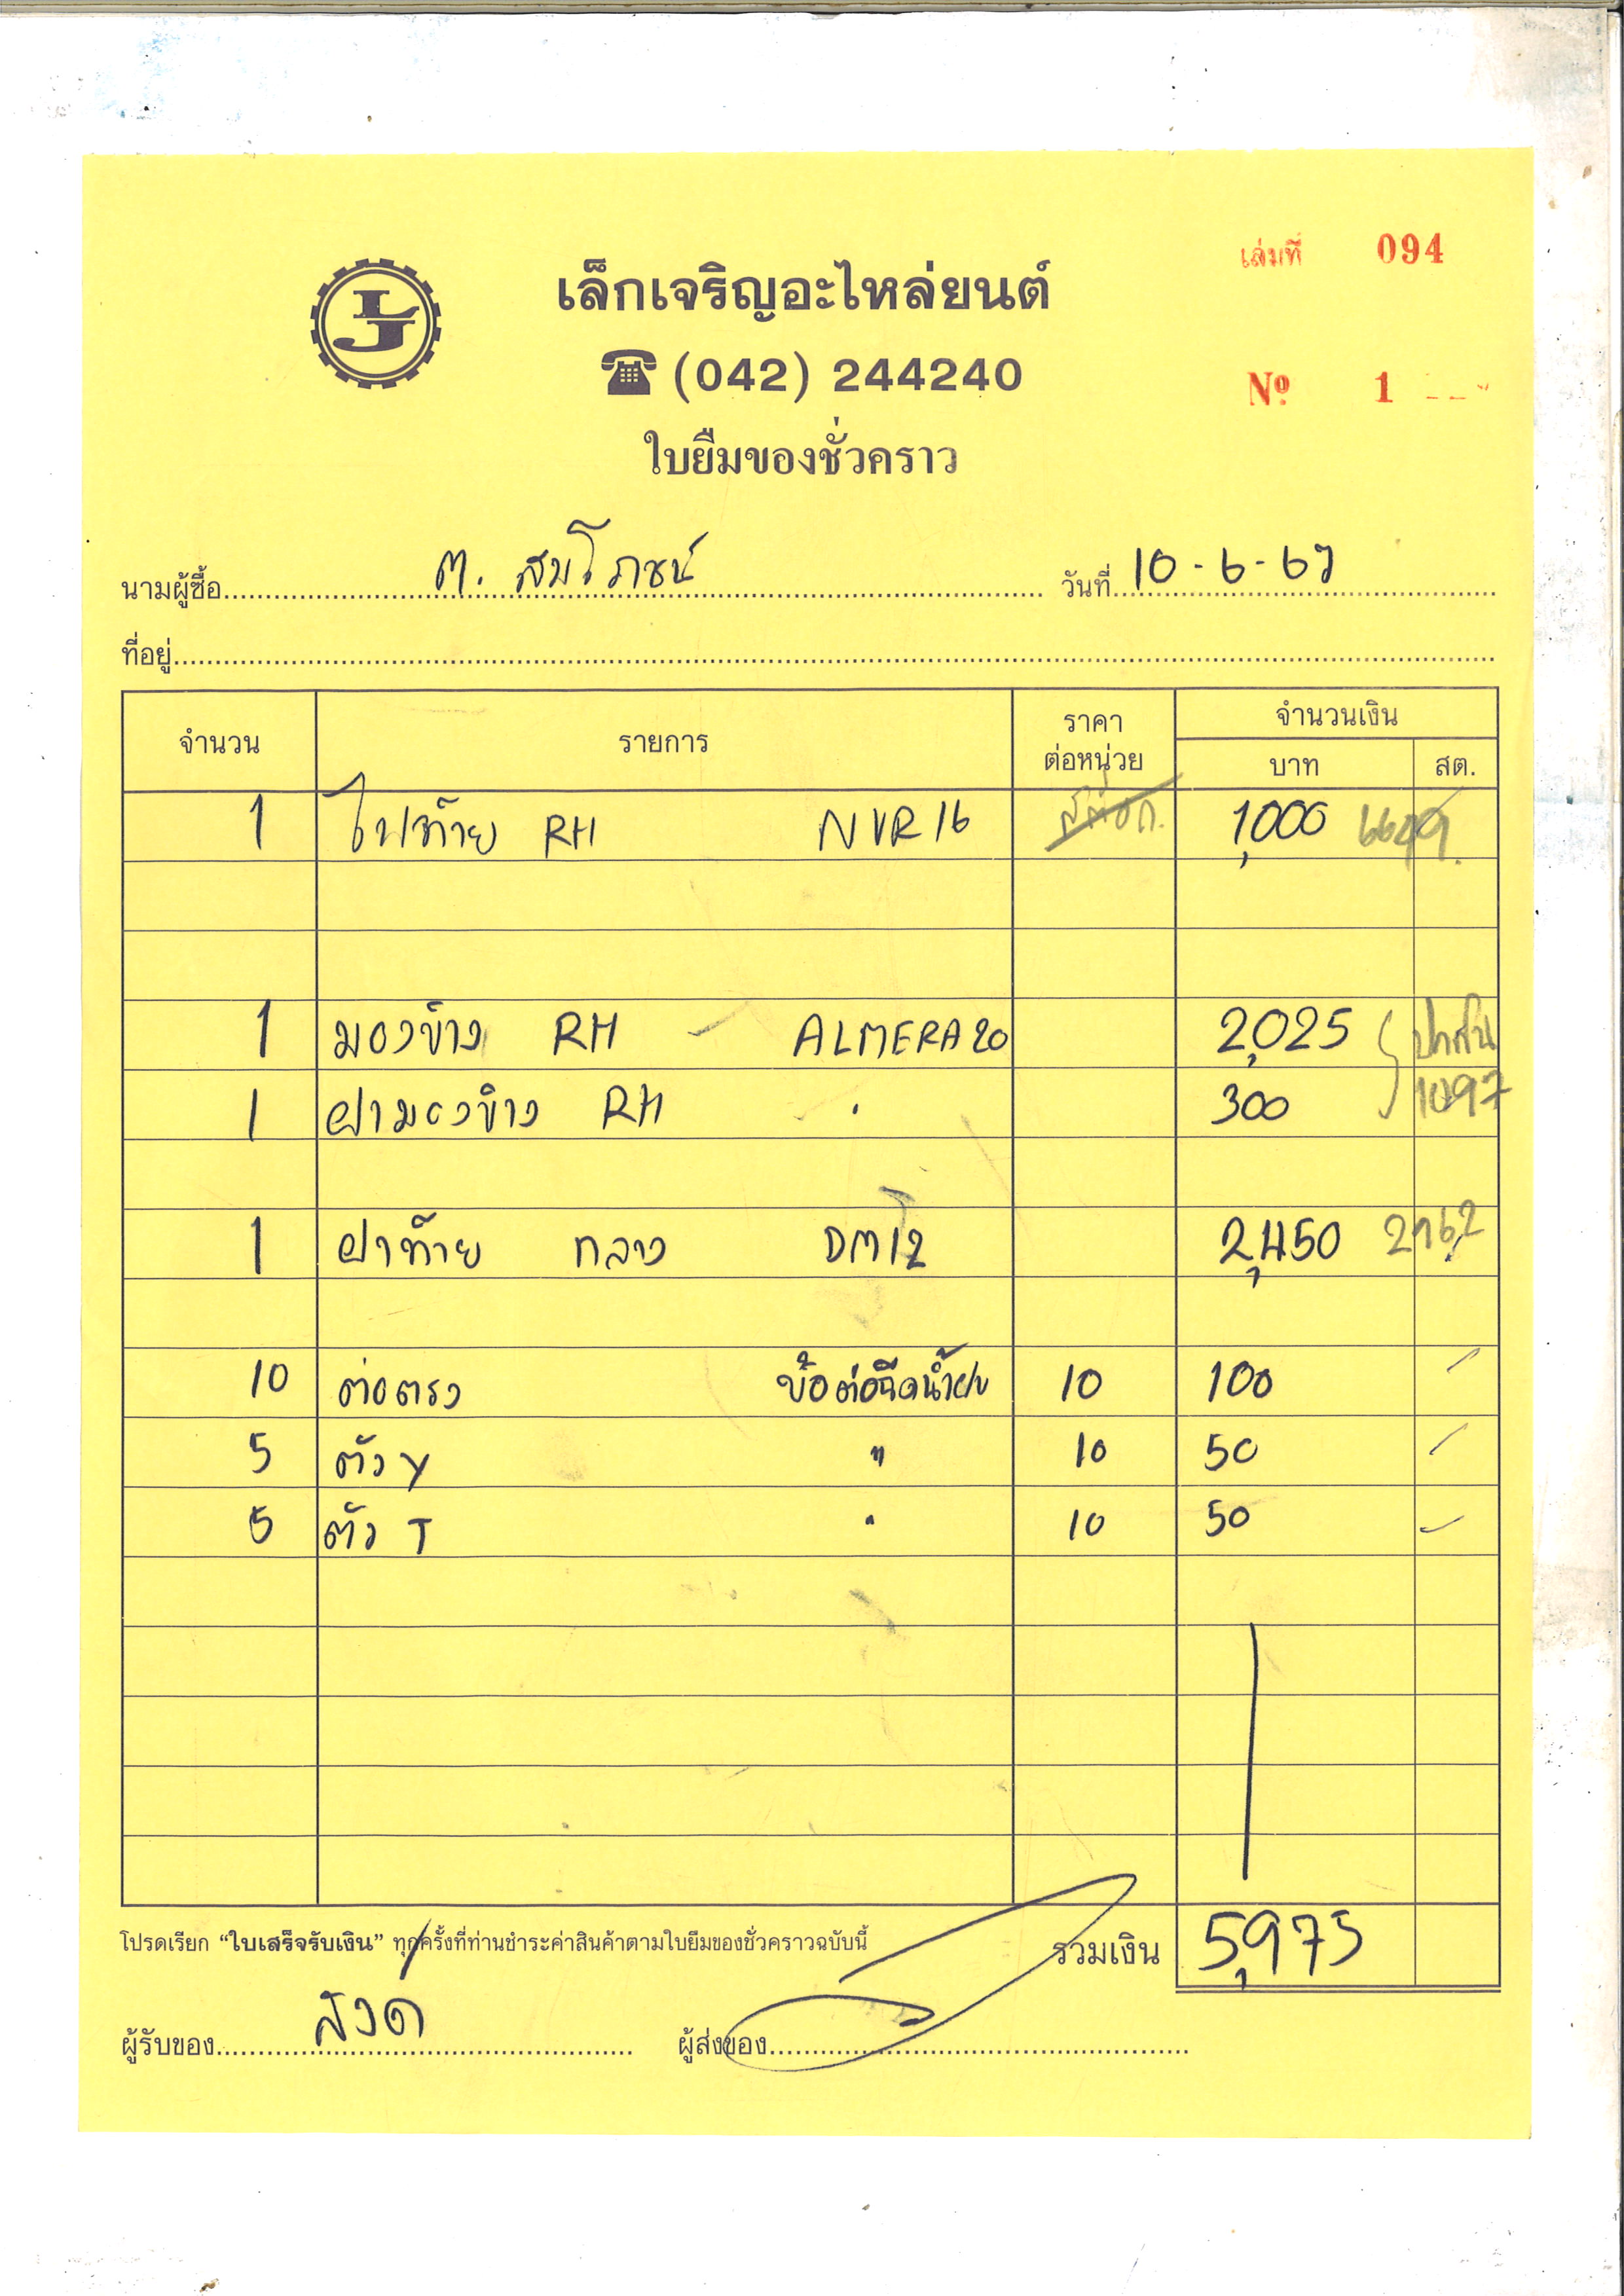 เล่มที่ 094
LJ
เล็กเจริญอะไหล่ยนต์
(042) 244240
Nº 1
ใบยืมของชั่วคราว
นามผู้ซื้อ ต. สมโภชน์ วันที่ 10-6-67
ที่อยู่
จำนวน รายการ ราคาต่อหน่วย จำนวนเงิน
บาท สต.
1 ไฟท้าย RH NVR16 1,000
1 มองข้าง RH ALMERA20 2,025
1 ฝามองข้าง RH " 300 1097
1 ฝาท้าย กลาง DM12 2,450 2962
10 ต่อตรง ข้อต่อฉีดน้ำฝน 10 100
5 ตัว Y " 10 50
5 ตัว T " 10 50
โปรดเรียก “ใบเสร็จรับเงิน” ทุกครั้งที่ท่านชำระค่าสินค้าตามใบยืมของชั่วคราวฉบับนี้ รวมเงิน 5,975
ผู้รับของ สังด ผู้ส่งของ